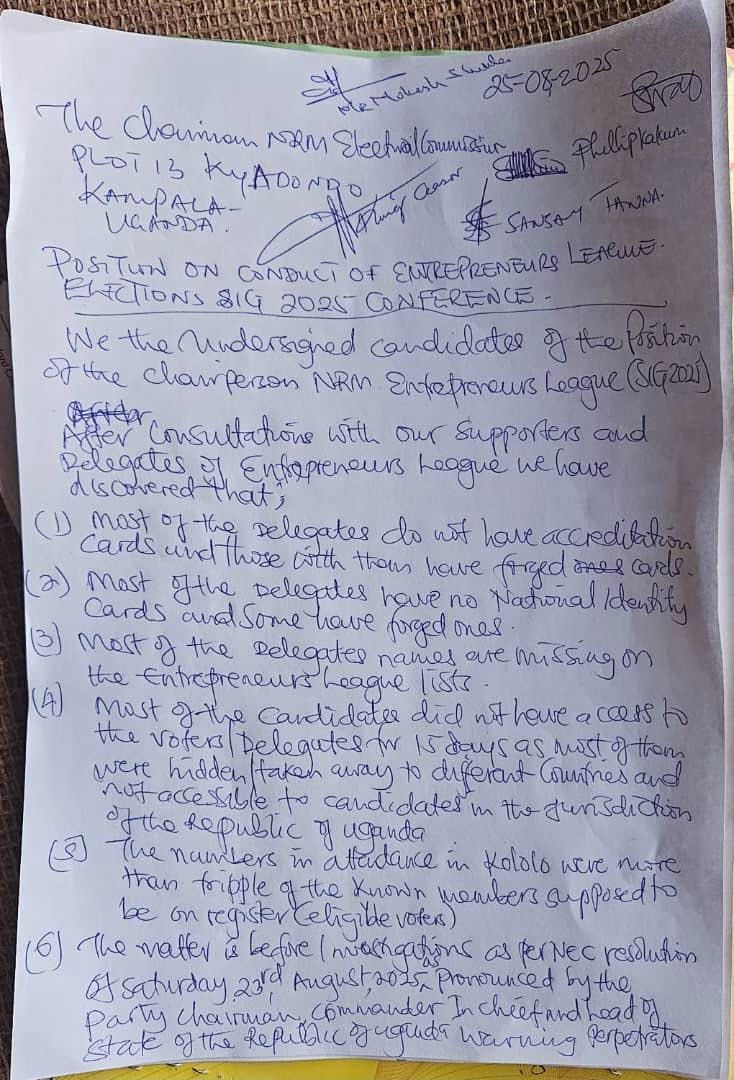 25-08-2025
The Chairman NRM Electoral Commission
PLOT 13 KYADONDO
KAMPALA-
UGANDA.
Phillip Kakuru
SANJAY TANNA.
POSITION ON CONDUCT OF ENTREPRENEURS LEAGUE.
ELECTIONS SIG 2025 CONFERENCE -
We the undersigned candidates of the Position
of the chairperson NRM Entrepreneurs League (SIG 2025)
After Consultations with our supporters and
Delegates of Entrepreneurs League we have
discovered that;
(1) Most of the Delegates do not have accreditation
Cards and those with them have forged ones cards.
(2) Most of the Delegates have no National Identity
Cards and some have forged ones.
(3) Most of the Delegates names are missing on
the Entrepreneurs League lists.
(4) Most of the Candidates did not have access to
the voters/Delegates for 15 days as most of them
were hidden/taken away to different Countries and
not accessible to candidates in the jurisdiction
of the Republic of Uganda
(5) The numbers in attadance in Kololo were more
than tripple of the known members supposed to
be on register (eligible voters)
(6) The matter is before Investigations as per NEC resolution
of Saturday 23rd August, 2025, as Pronounced by the
Party chairman, Commander In cheef and head of
state of the Republic of Uganda warning perpetrators